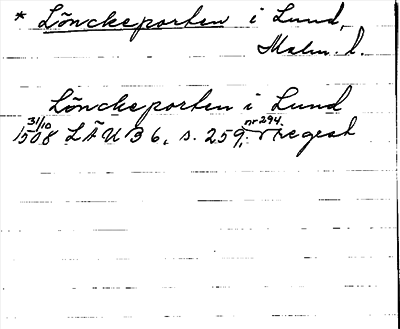 * Lönckeporten i Lund,
Malm. l.
Lönckeporten i Lund
31/10 nr 294.
1508 LÄU 36, s. 259, regest